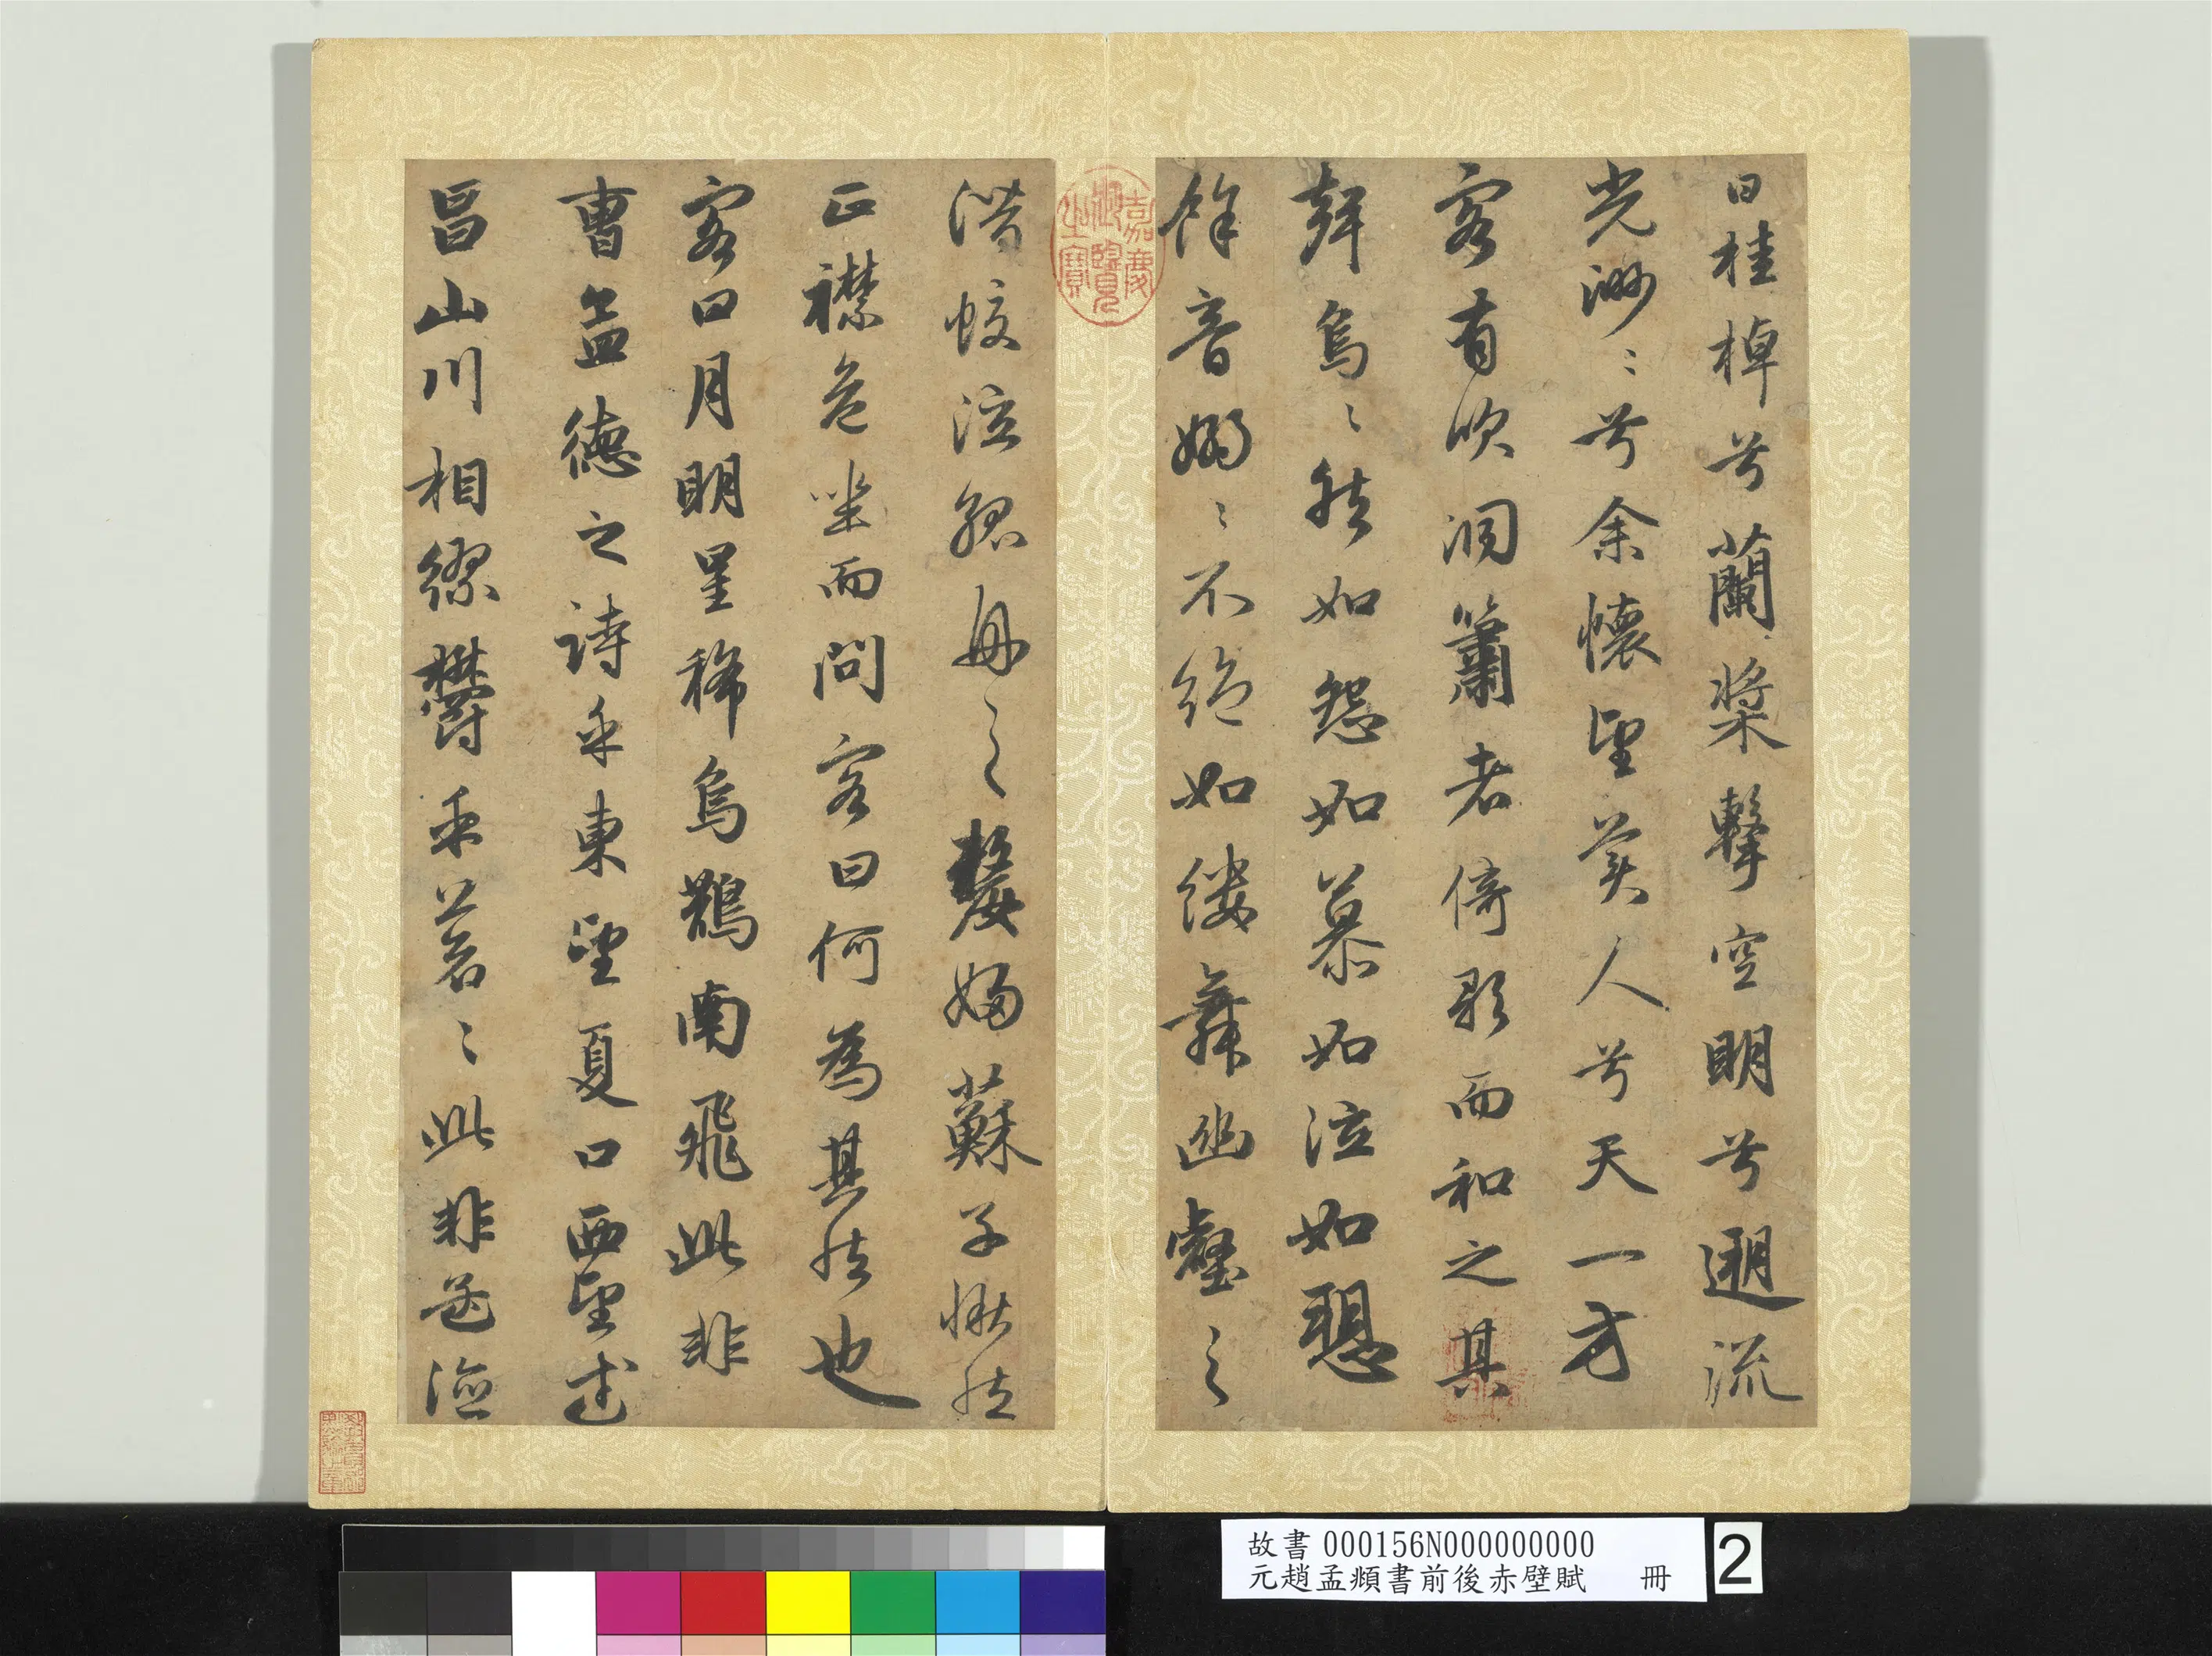 曰桂棹兮蘭槳擊空明兮遡流
光渺〻兮余懷望美人兮天一方
客有吹洞簫者倚歌而和之其
聲烏〻然如怨如慕如泣如愬
餘音嫋〻不絕如縷舞幽壑之
潛蛟泣孤舟之〻嫠婦蘇子愀然
正襟危坐而問客曰何為其然也
客曰月明星稀烏鵲南飛此非
曹孟德之詩乎東望夏口西望武
昌山川相繆欝乎蒼〻此非孟德
嘉慶御覽之寶
故書 000156N000000000
元趙孟頫書前後赤壁賦 冊
2